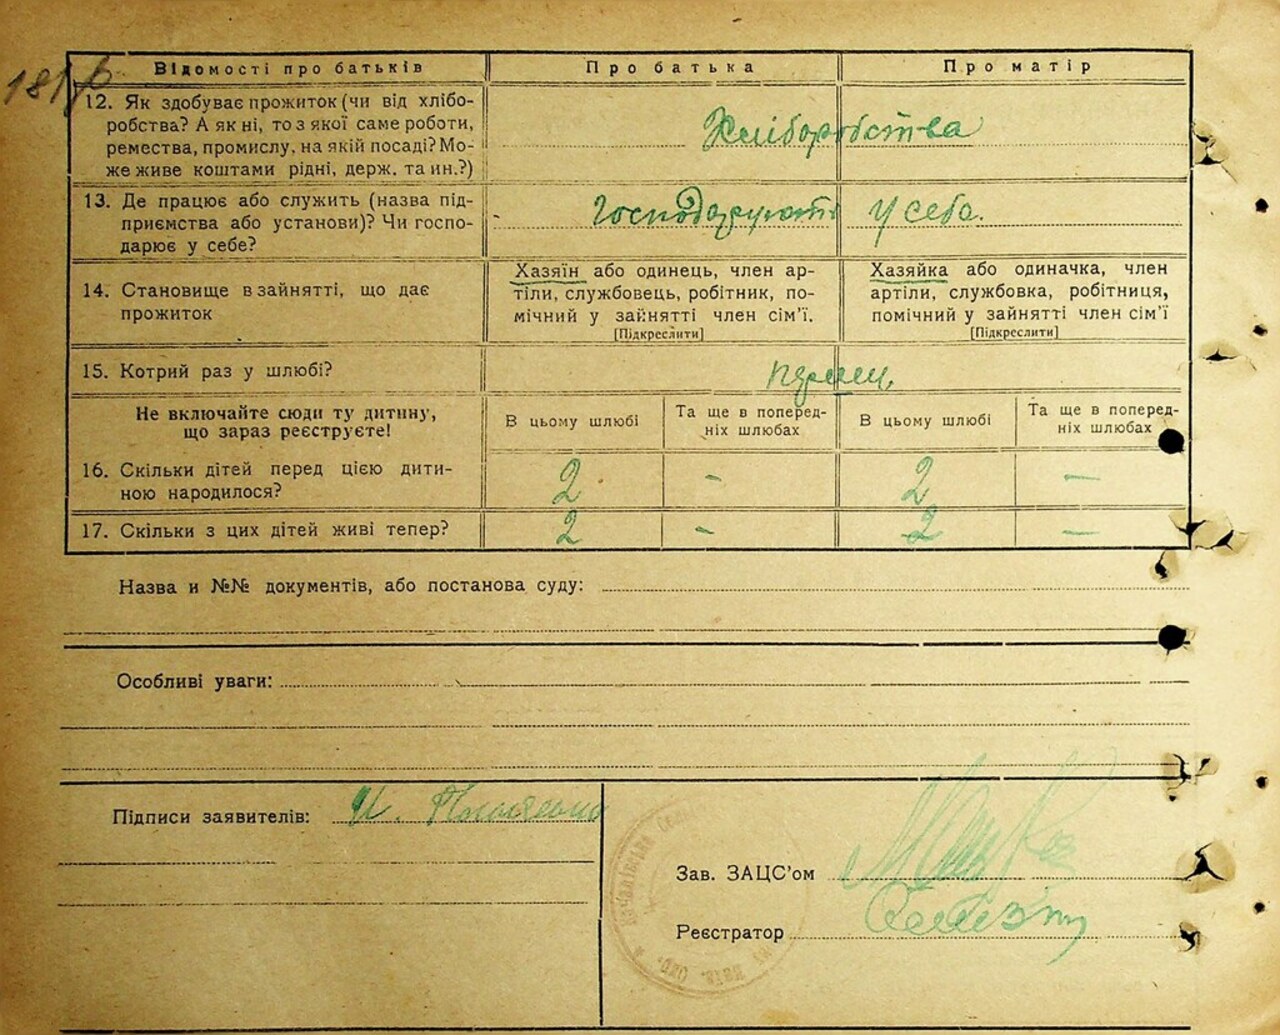 Відомості про батьків Про батька Про матір
12. Як здобуває прожиток (чи від хлібо-
робства? А як ні, то з якої саме роботи,
ремества, промислу, на якій посаді? Мо-
же живе коштами рідні, держ. та ин.?)
Хліборобства
13. Де працює або служить (назва під-
приємства або установи)? Чи госпо-
дарює у себе?
Господарюють у себе.
14. Становище в зайнятті, що дає
прожиток
Хазяїн або одинець, член ар-
тіли, службовець, робітник, по-
мічний у зайнятті член сім'ї.
[Підкреслити]
Хазяйка або одиначка, член
артіли, службовка, робітниця,
помічний у зайнятті член сім'ї
[Підкреслити]
15. Котрий раз у шлюбі?
Не включайте сюди ту дитину,
що зараз реєструєте!
В цьому шлюбі
Та ще в поперед-
ніх шлюбах
В цьому шлюбі
Та ще в поперед-
ніх шлюбах
16. Скільки дітей перед цією дити-
ною народилося?
2 - 2 —
17. Скільки з цих дітей живі тепер? 2 - 2 —
Назва и №№ документів, або постанова суду:
Особливі уваги:
Підписи заявителів:
Зав. ЗАЦС'ом
Реєстратор